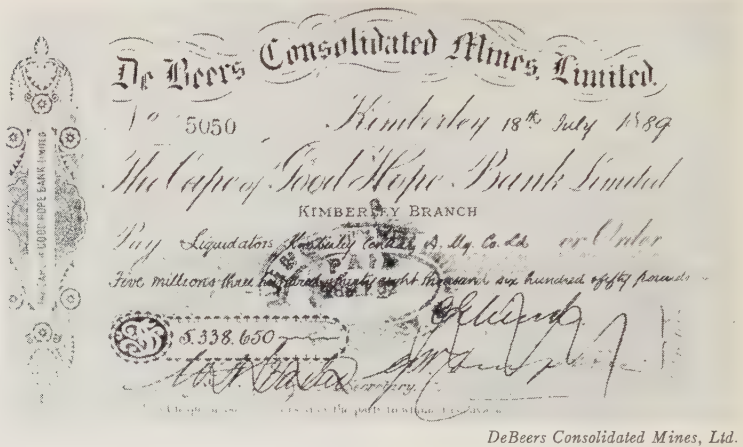 De Beers Consolidated Mines, Limited.
No 5050 Kimberley 18th July 1889
The Cape of Good Hope Bank Limited
KIMBERLEY BRANCH
Pay Liquidators Kimberley Central D. Mg. Co. Ld or Order
PAID
Five millions three hundred thirty eight thousand six hundred & fifty pounds
5.338.650
Secretary.
GOOD HOPE BANK LIMITED
DeBeers Consolidated Mines, Ltd.